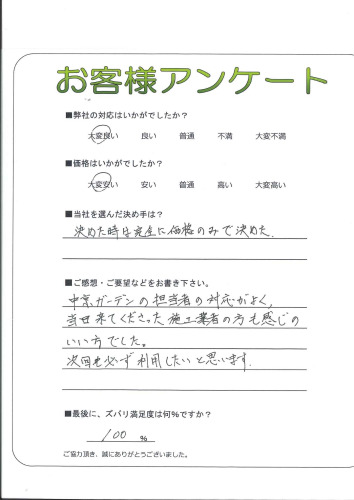 お客様アンケート
■弊社の対応はいかがでしたか？
大変良い 良い 普通 不満 大変不満
■価格はいかがでしたか？
大変安い 安い 普通 高い 大変高い
■当社を選んだ決め手は？
決めた時は完全に価格のみで決めた.
■ご感想・ご要望などをお書き下さい。
中京ガーデンの担当者の対応がよく、
当日来てくださった施工業者の方も感じの
いい方でした。
次回も必ず利用したいと思います.
■最後に、ズバリ満足度は何%ですか？
100 %
ご協力頂き、誠にありがとうございました。